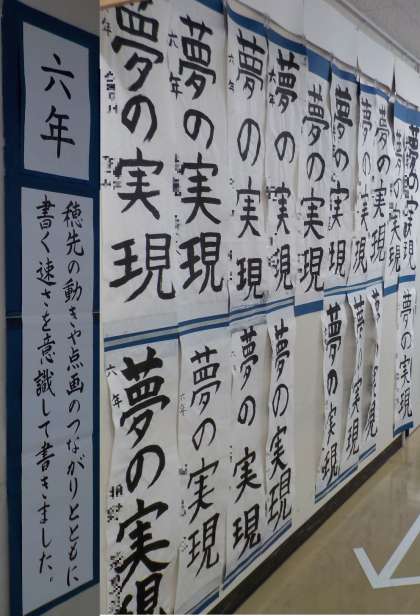 六年
穂先の動きや点画のつながりとともに
書く速さを意識して書きました。
六年
夢の実現
六年
夢の実現
六年
夢の実現
六年
夢の実現
夢の実現
夢の実現
夢の実現
夢の実現
夢の実現
夢の実現
六年
夢の実現
六年
夢の実現
六年
夢の実現
夢の実現
夢の実現
夢の実現
夢の実現
夢の実現